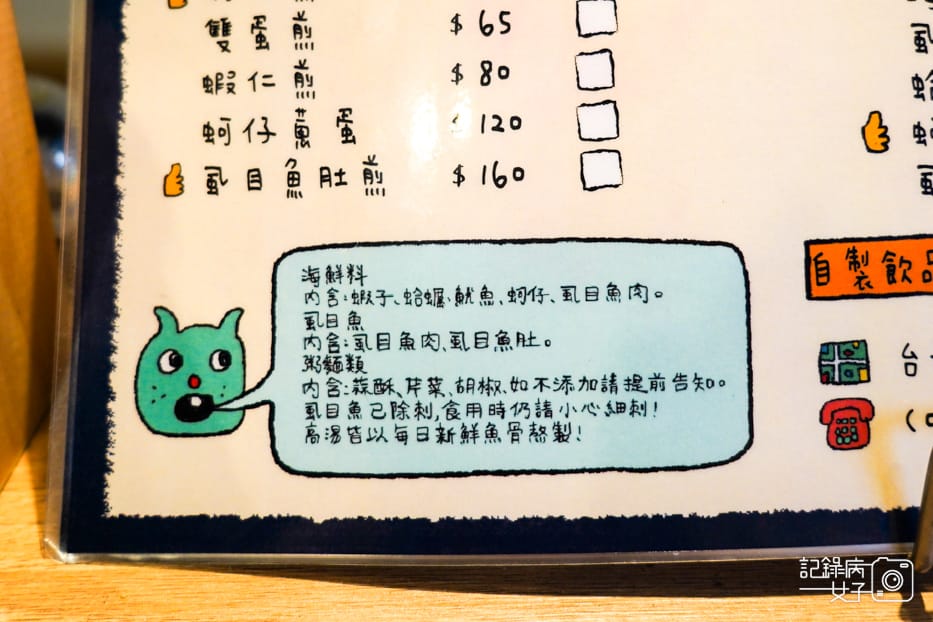 雙蛋煎 $65
蝦仁煎 $80
蚵仔蔥蛋 $120
虱目魚肚煎 $160
海鮮料
內含:蝦子、蛤蠣、魷魚、蚵仔、虱目魚肉。
虱目魚
內含:虱目魚肉、虱目魚肚。
粥麵類
內含:蒜酥、芹菜、胡椒、如不添加請提前告知。
虱目魚已除刺,食用時仍請小心細刺!
高湯皆以每日新鮮魚骨熬製!
虱
蛤
蚵
虱
自製飲品
台
記錄病女子